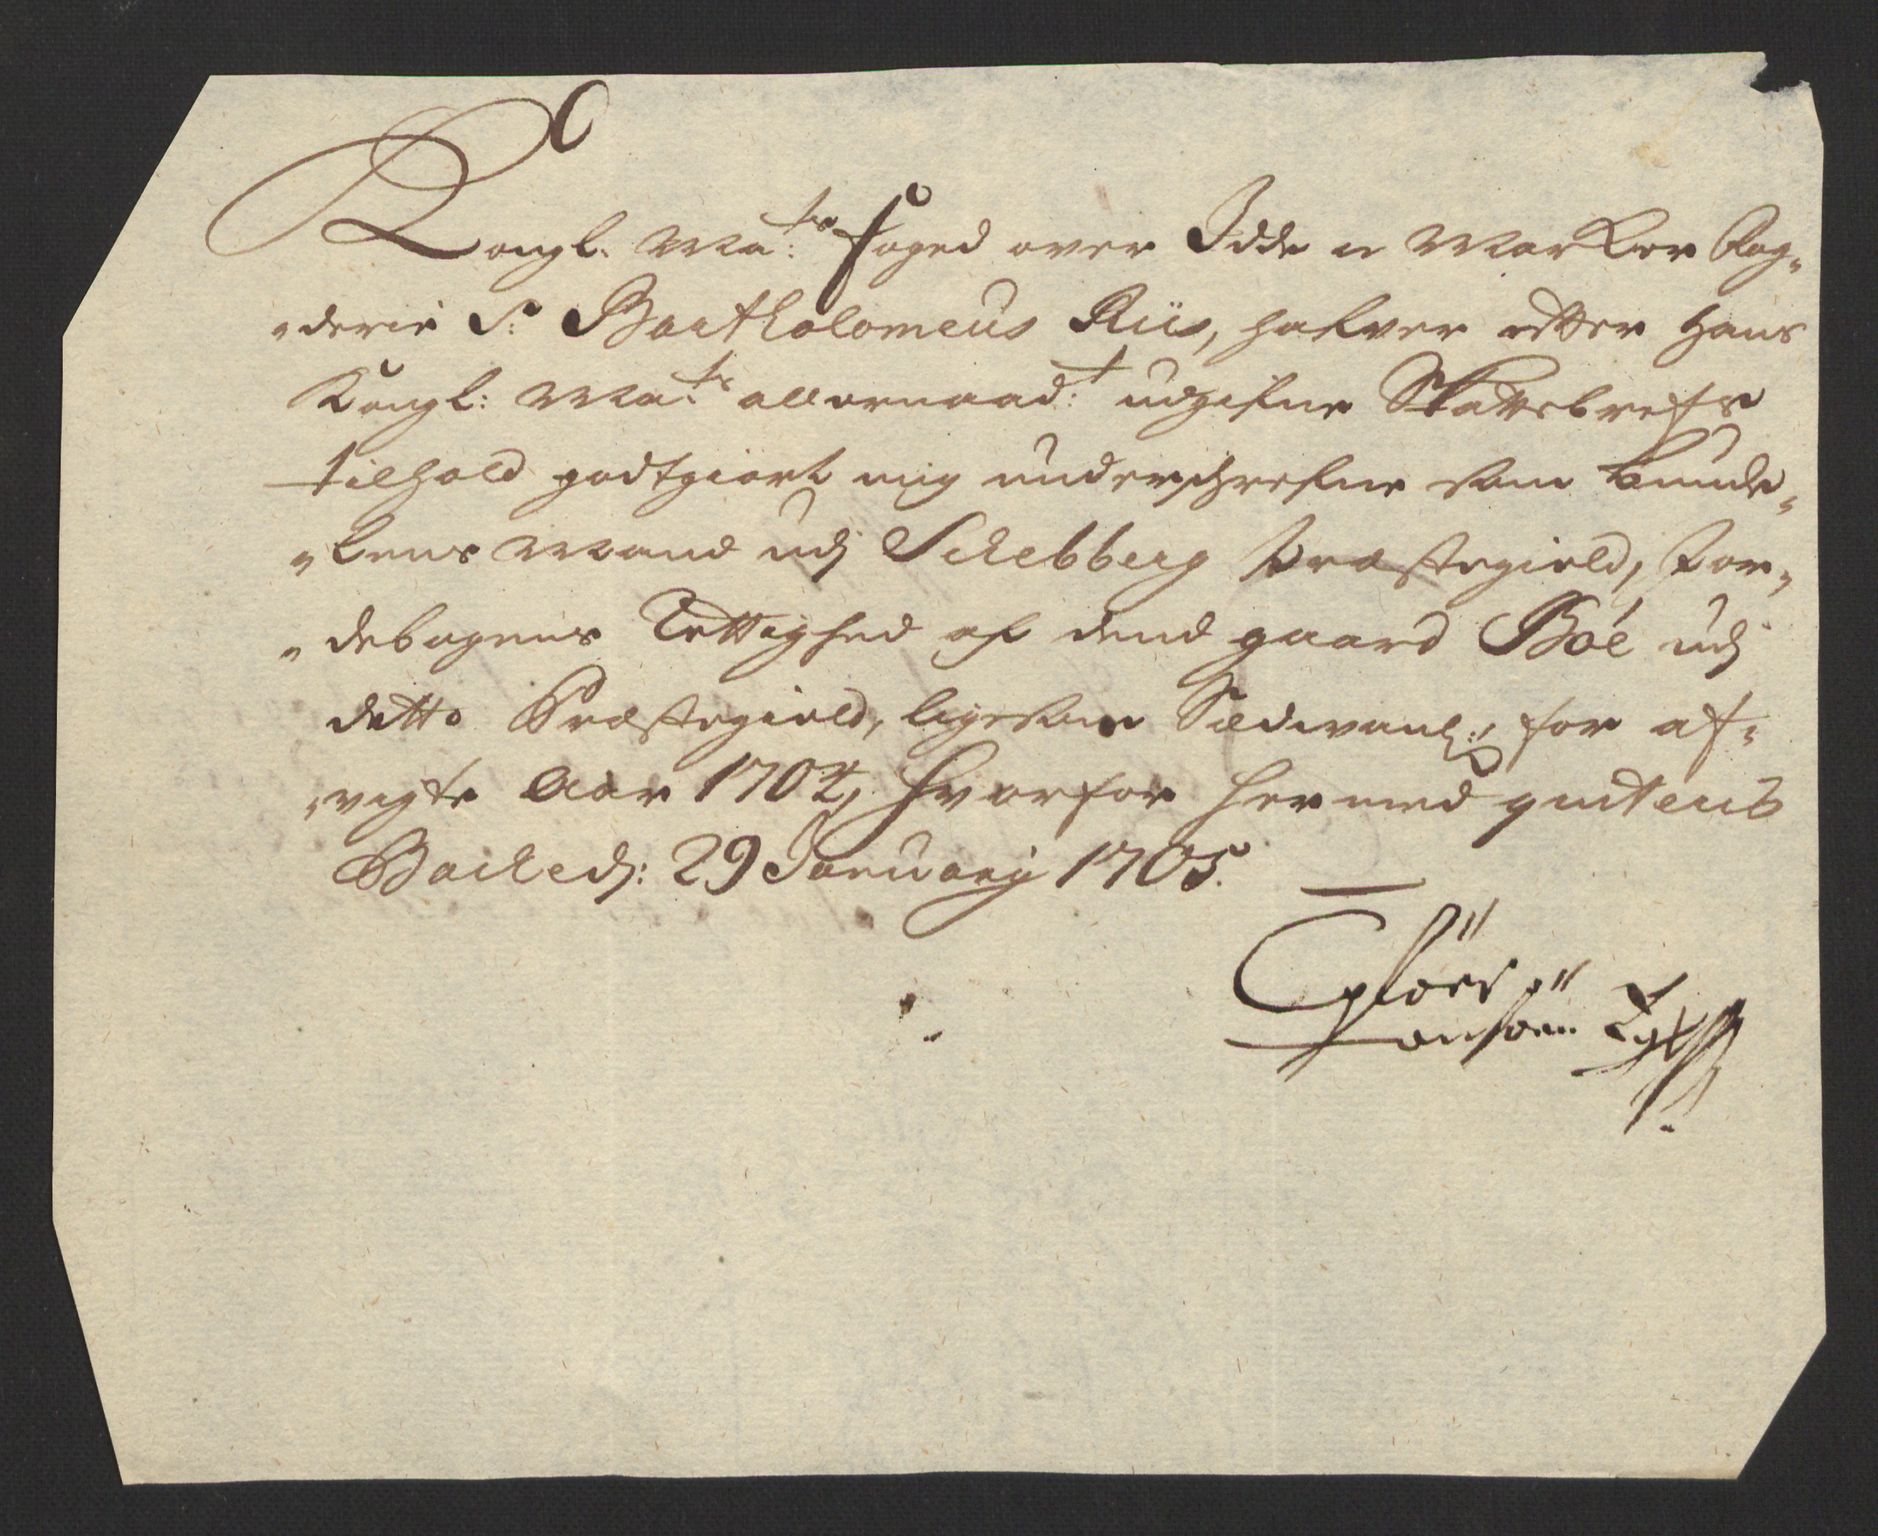 Kongl: Ma:ts foged over Idde u Marker fog-
-derie Sr: Bartholomeus Riis, hafver efter Hans
Kongl: Ma:ts allernaad:t udgifne Skattebrefs
tilhold godtgiort mig underschrefne som bunde-
-lens Mand udj Schebberg Præstegield, For-
-debogens Rettighed af dend gaard Böe udj
detto Præstegield, ligesom Sædwanl:, for af-
-vigte Aar 1704, Hvorfor hermed quiteris
Backe dj: 29 January 1705.